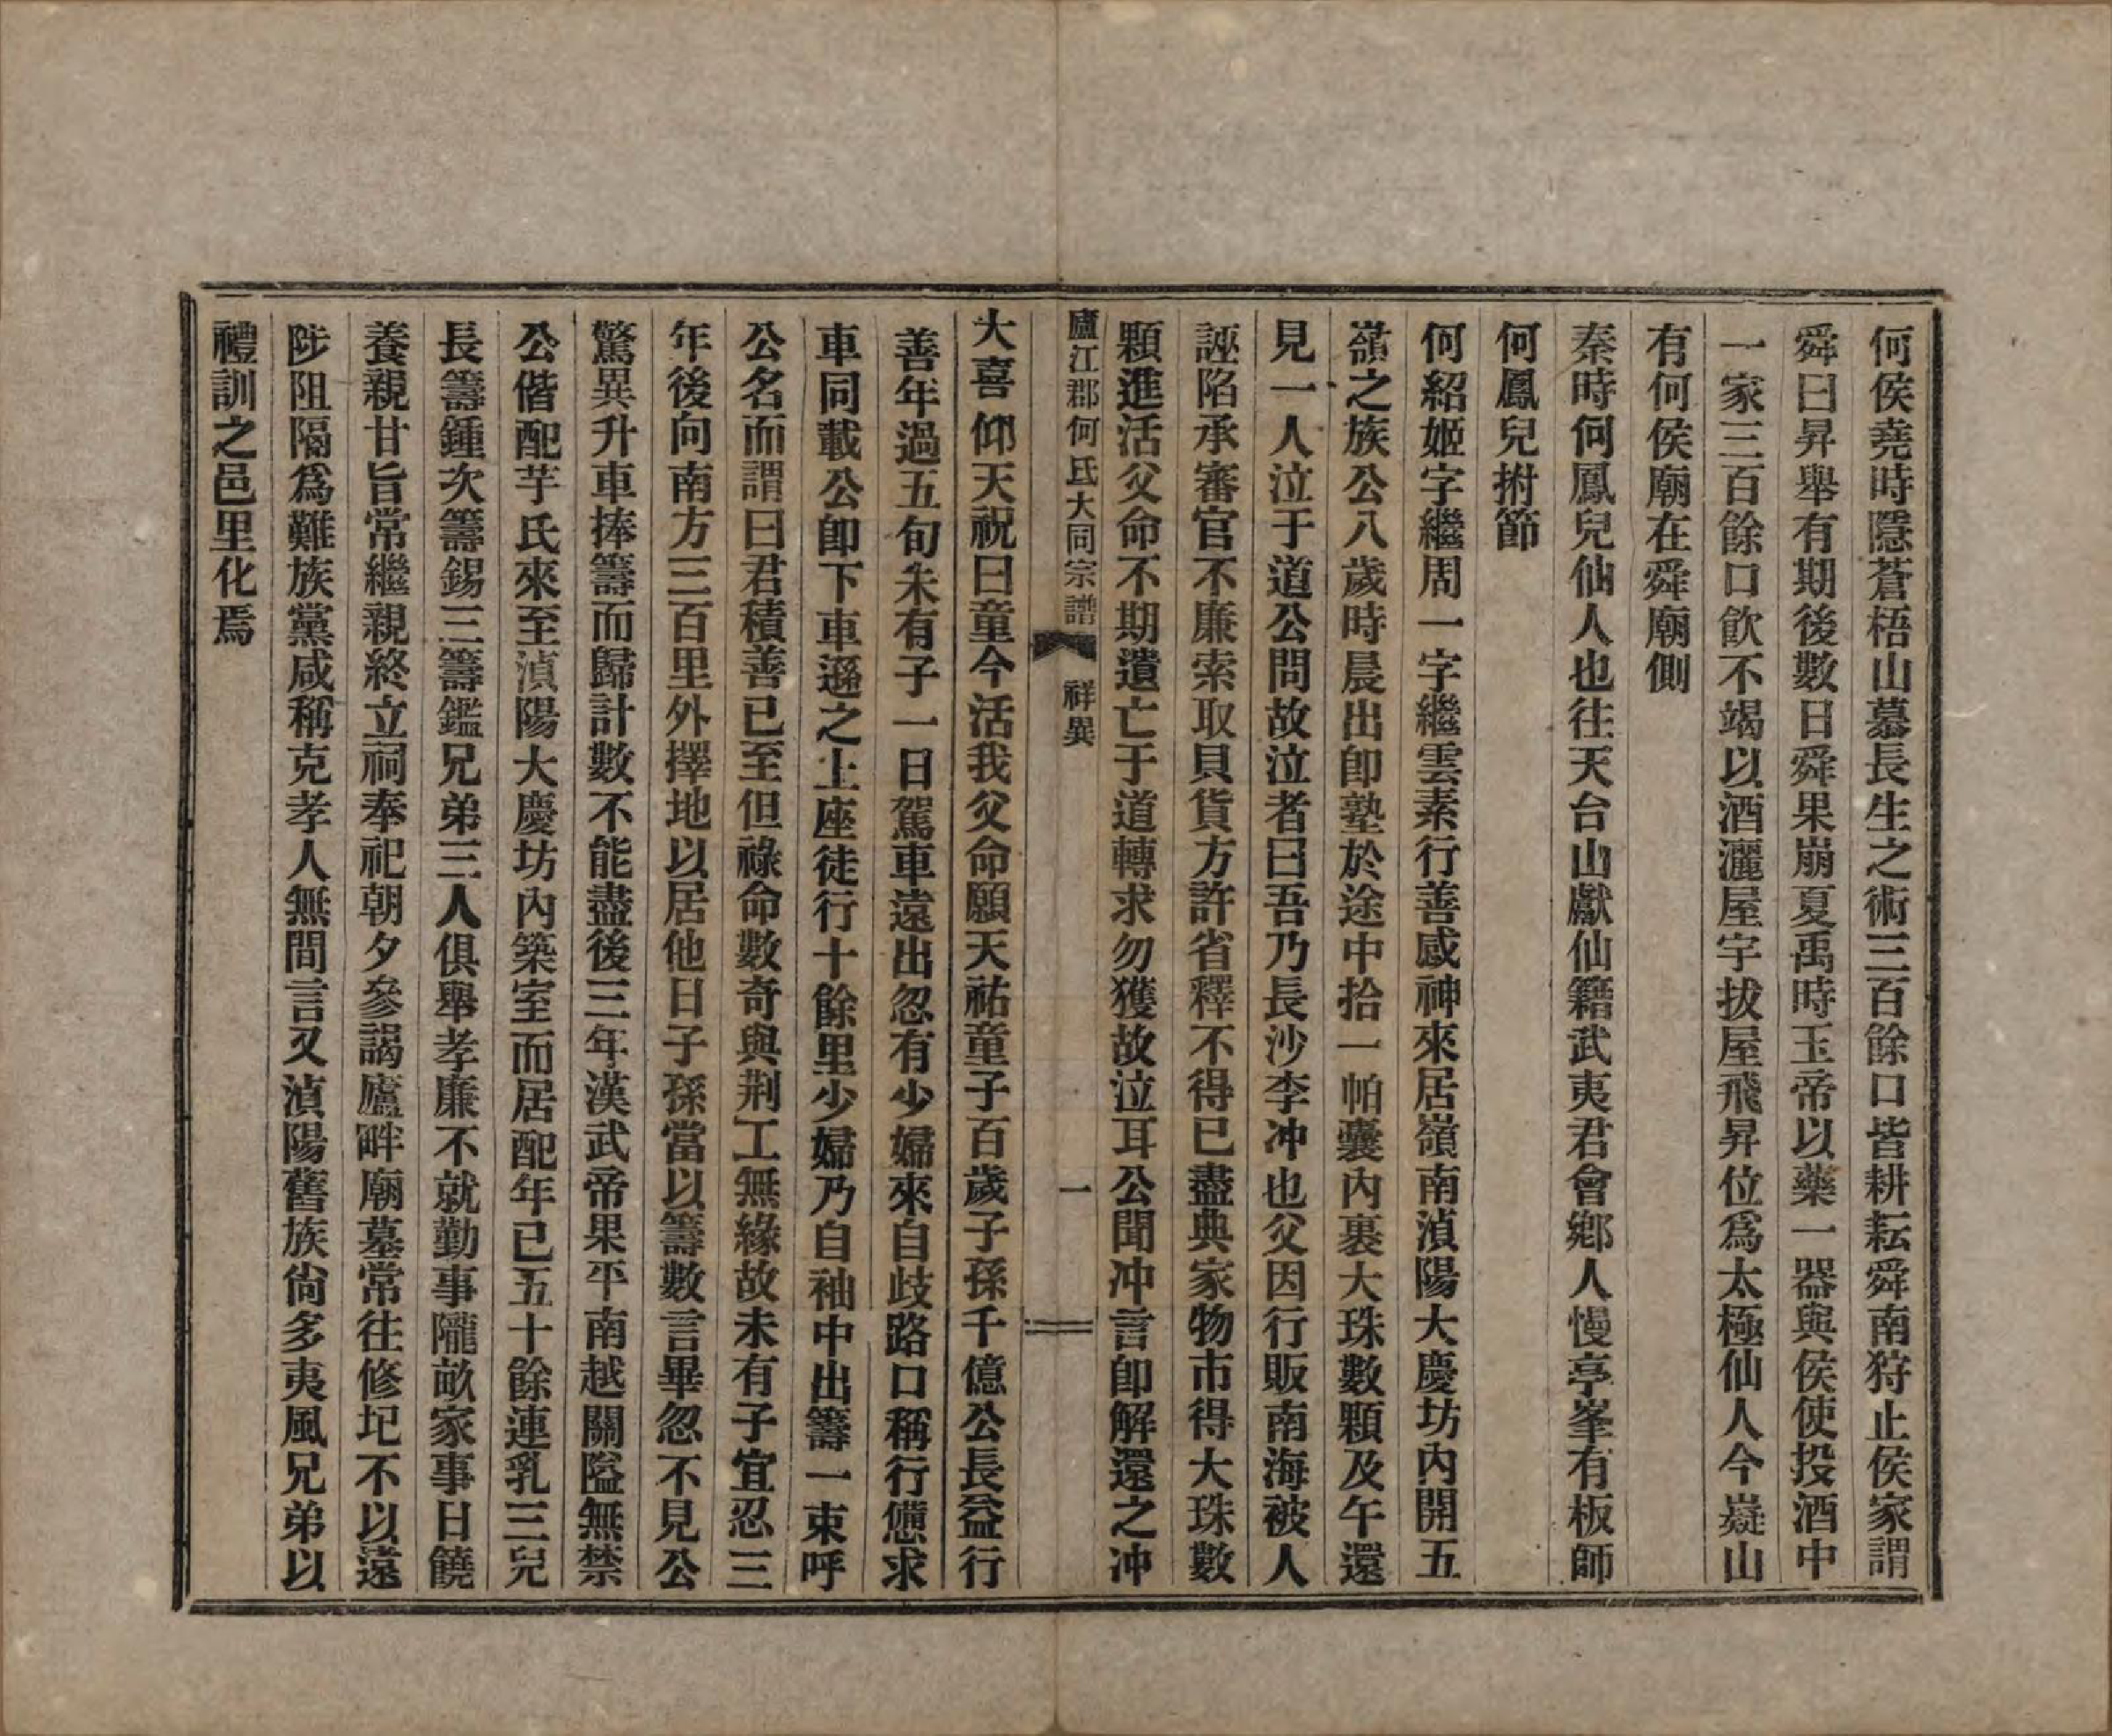 何侯堯時隱蒼梧山慕長生之術三百餘口皆耕耘舜南狩止侯家謂
舜曰昇舉有期後數日舜果崩夏禹時玉帝以藥一器與侯使投酒中
一家三百餘口飮不竭以酒灑屋宇拔屋飛昇位爲太極仙人今嶷山
有何侯廟在舜廟側
秦時何鳳兒仙人也往天台山獻仙籍武夷君會鄉人慢亭峯有板師
何鳳兒拊節
何紹姬字繼周一字繼雲素行善感神來居嶺南湞陽大慶坊內開五
嶺之族公八歲時晨出卽塾於途中拾一帕囊內裹大珠數顆及午還
見一人泣于道公問故泣者曰吾乃長沙李冲也父因行販南海被人
誣陷承審官不廉索取貝貨方許省釋不得已盡典家物市得大珠數
顆進活父命不期遺亡于道轉求勿獲故泣耳公聞冲言卽解還之冲
廬江郡何氏大同宗譜 祥異 一
大喜仰天祝曰童今活我父命願天祐童子百歲子孫千億公長益行
善年過五旬未有子一日駕車遠出忽有少婦來自歧路口稱行憊求
車同載公卽下車遜之上座徒行十餘里少婦乃自袖中出籌一束呼
公名而謂曰君積善已至但祿命數奇與荆工無緣故未有子宜忍三
年後向南方三百里外擇地以居他日子孫當以籌數言畢忽不見公
驚異升車捧籌而歸計數不能盡後三年漢武帝果平南越關隘無禁
公偕配芋氏來至湞陽大慶坊內築室而居配年已五十餘連乳三兒
長籌鍾次籌錫三籌鑑兄弟三人俱舉孝廉不就勤事隴畝家事日饒
養親甘旨常繼親終立祠奉祀朝夕參謁廬畔廟墓常往修圮不以遠
陟阻隔爲難族黨咸稱克孝人無間言又湞陽舊族尙多夷風兄弟以
禮訓之邑里化焉